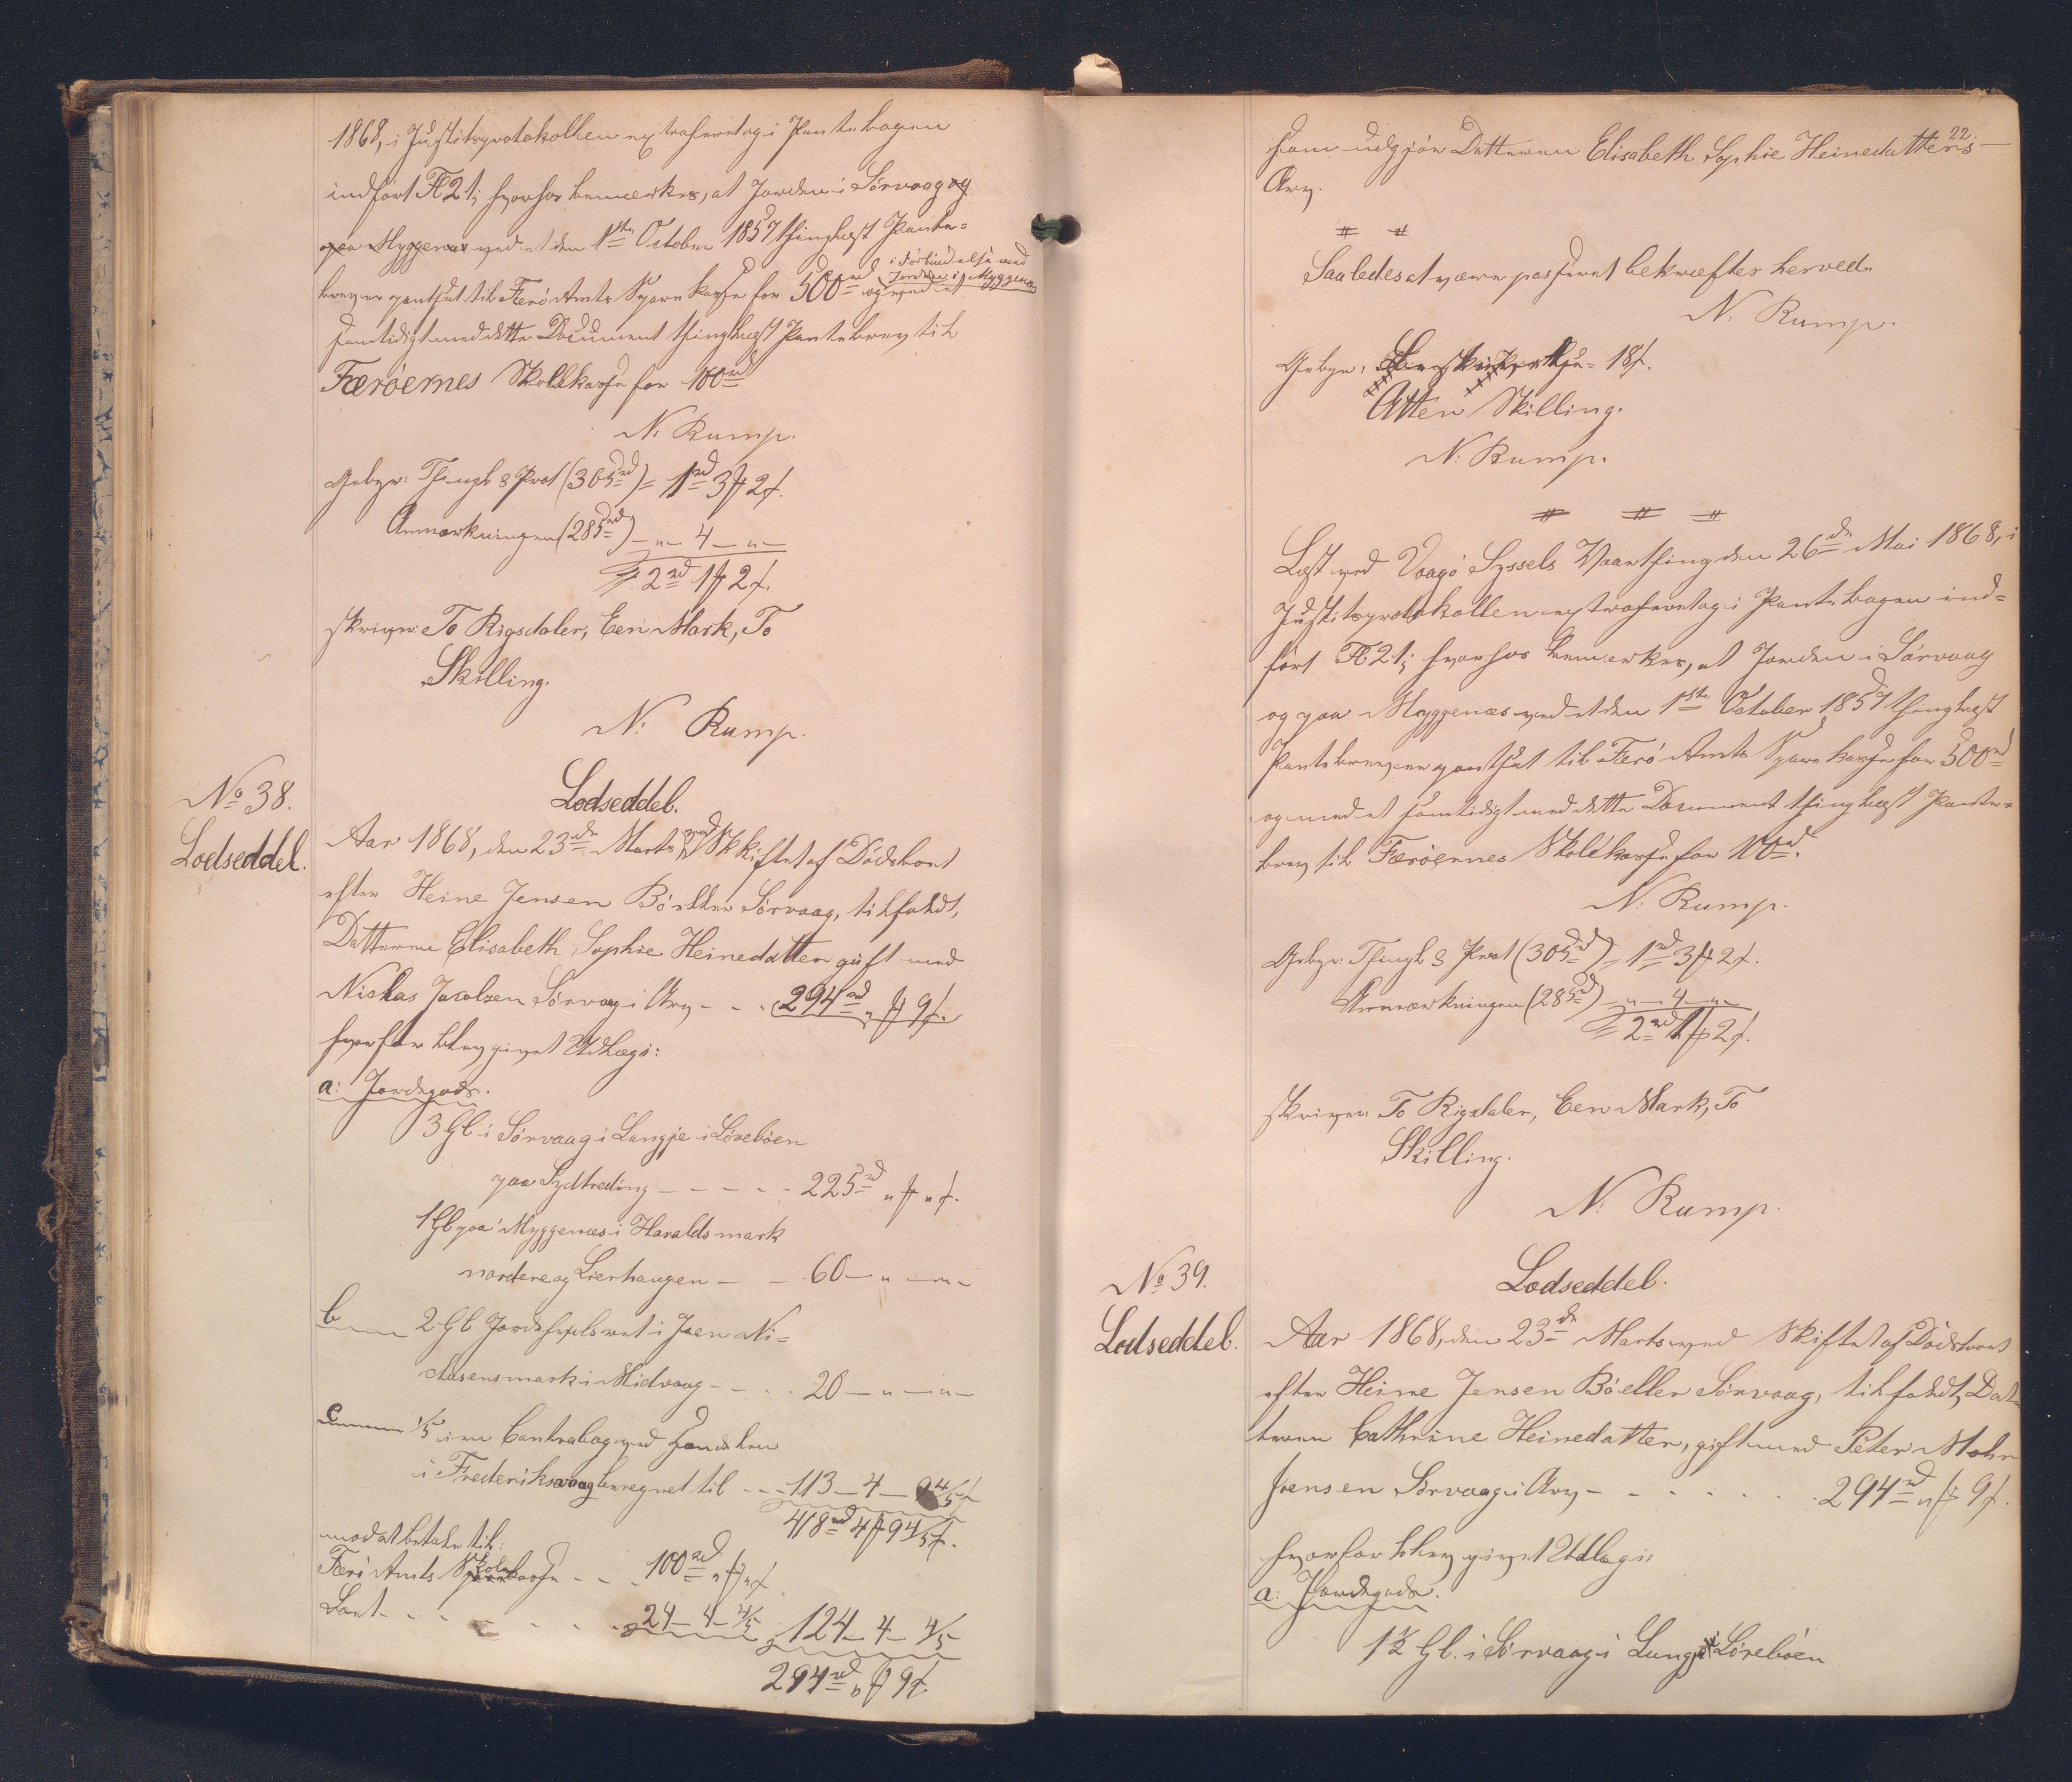 1868, i Justitsprotokollen extraheretog i Pantebogen
indført Fol 21; hvorhos bemærkes, at Jorden i Sørvaag og
paa Myggenæs ved et den 1ste October 1857 thinglæst Pante-
brev er pantsat til Færø Amts Sparekasse for 500 rd og ved et
i Forbindelse med
Jorden i Myggenæs
samtidigt med dette Document thinglæst Pantebrev til
Færøernes Skolekasse for 100 rd
N: Rump.
Gebyr: Thingl & Prot (305 rd) = 1 rd 3 ℔ 2 ß.
Anmærkningen (285 rd) — " — 4 — " —
= 2 rd 1 ℔ 2 ß.
skriver: To Rigsdaler, Een Mark, To
Skilling.
N: Rump.
No 38.
Lodseddel.
Lodseddel.
Aar 1868, den 23de Marts ved Skiftet af Dødsboet
efter Heine Jensen Bøeller Sørvaag, tilfaldt,
Datteren Elisabeth Sophie Heinedatter gift med
Niclas Jacobsen Sørvaag i Arv - - - 294 rd " ℔ 9 ß.
hvorfor blev givet Udlæg i:
a: Jordegods.
3 Gl i Sørvaag i Lungje i Lørebøen
paa Sydtreding - - - - - 225 rd " ℔ " ß.
1 Gl paa Myggenæs i Haraldsmark
nordere og Lierhaugen - - 60 — " — " —
b 2 Gl Jordfæstet i Joen Ni=
clasensmark i Midvaag - - - 20 — " — " —
c 1/5 i en Contrabog ved Handelen
i Frederiksvaag beregnet til - - - 113 — 4 — 9 4/5 ß
418 rd 4 ℔ 9 4/5 ß.
mod at betale til:
Færø Amts Skolekasse - - - 100 rd " ℔ " ß
Læst - - - - - - 24 — 4 — 4/5 124 — 4 — 4/5
294 rd " ℔ 9 ß.
22.
som udgjør Datteren Elisabeth Sophie Heinedatters
Arv.
Saaledes at være passeret bekræfter herved.
N: Rump.
Gebyr: 18 ß.
Atten Skilling.
N: Rump.
Læst ved Vaagø Syssels Vaarthing den 26de Mai 1868, i
Justitsprotokollen extraheretog i Pantebogen ind=
ført Fol 21; hvorhos bemærkes, at Jorden i Sørvaag
og paa Myggenæs ved et den 1ste October 1857 thinglæst
Pantebrev er pantsat til Færø Amts Sparekasse for 500 rd
og med et samtidigt med dette Document thinglæst Pante=
brev til Færøernes Skolekasse for 100 rd.
N: Rump.
Gebyr: Thingl & Prot (305 rd) = 1 rd 3 ℔ 2 ß.
Anmærkningen (285 rd) — " — 4 — " —
= 2 rd 1 ℔ 2 ß.
skriver: To Rigsdaler, Een Mark, To
Skilling.
N: Rump.
No 39.
Lodseddel.
Lodseddel.
Aar 1868, den 23de Marts ved Skiftet af Dødsboet
efter Heine Jensen Bøeller Sørvaag, tilfaldt, Dat-
teren Cathrine Heinedatter, gift med Peter Mohr
Joensen Sørvaag i Arv - - - - - - 294 rd " ℔ 9 ß.
hvorfor blev givet Udlæg i:
a: Jordegods.
1 1/2 Gl. i Sørvaag i Lungje i Lørebøen